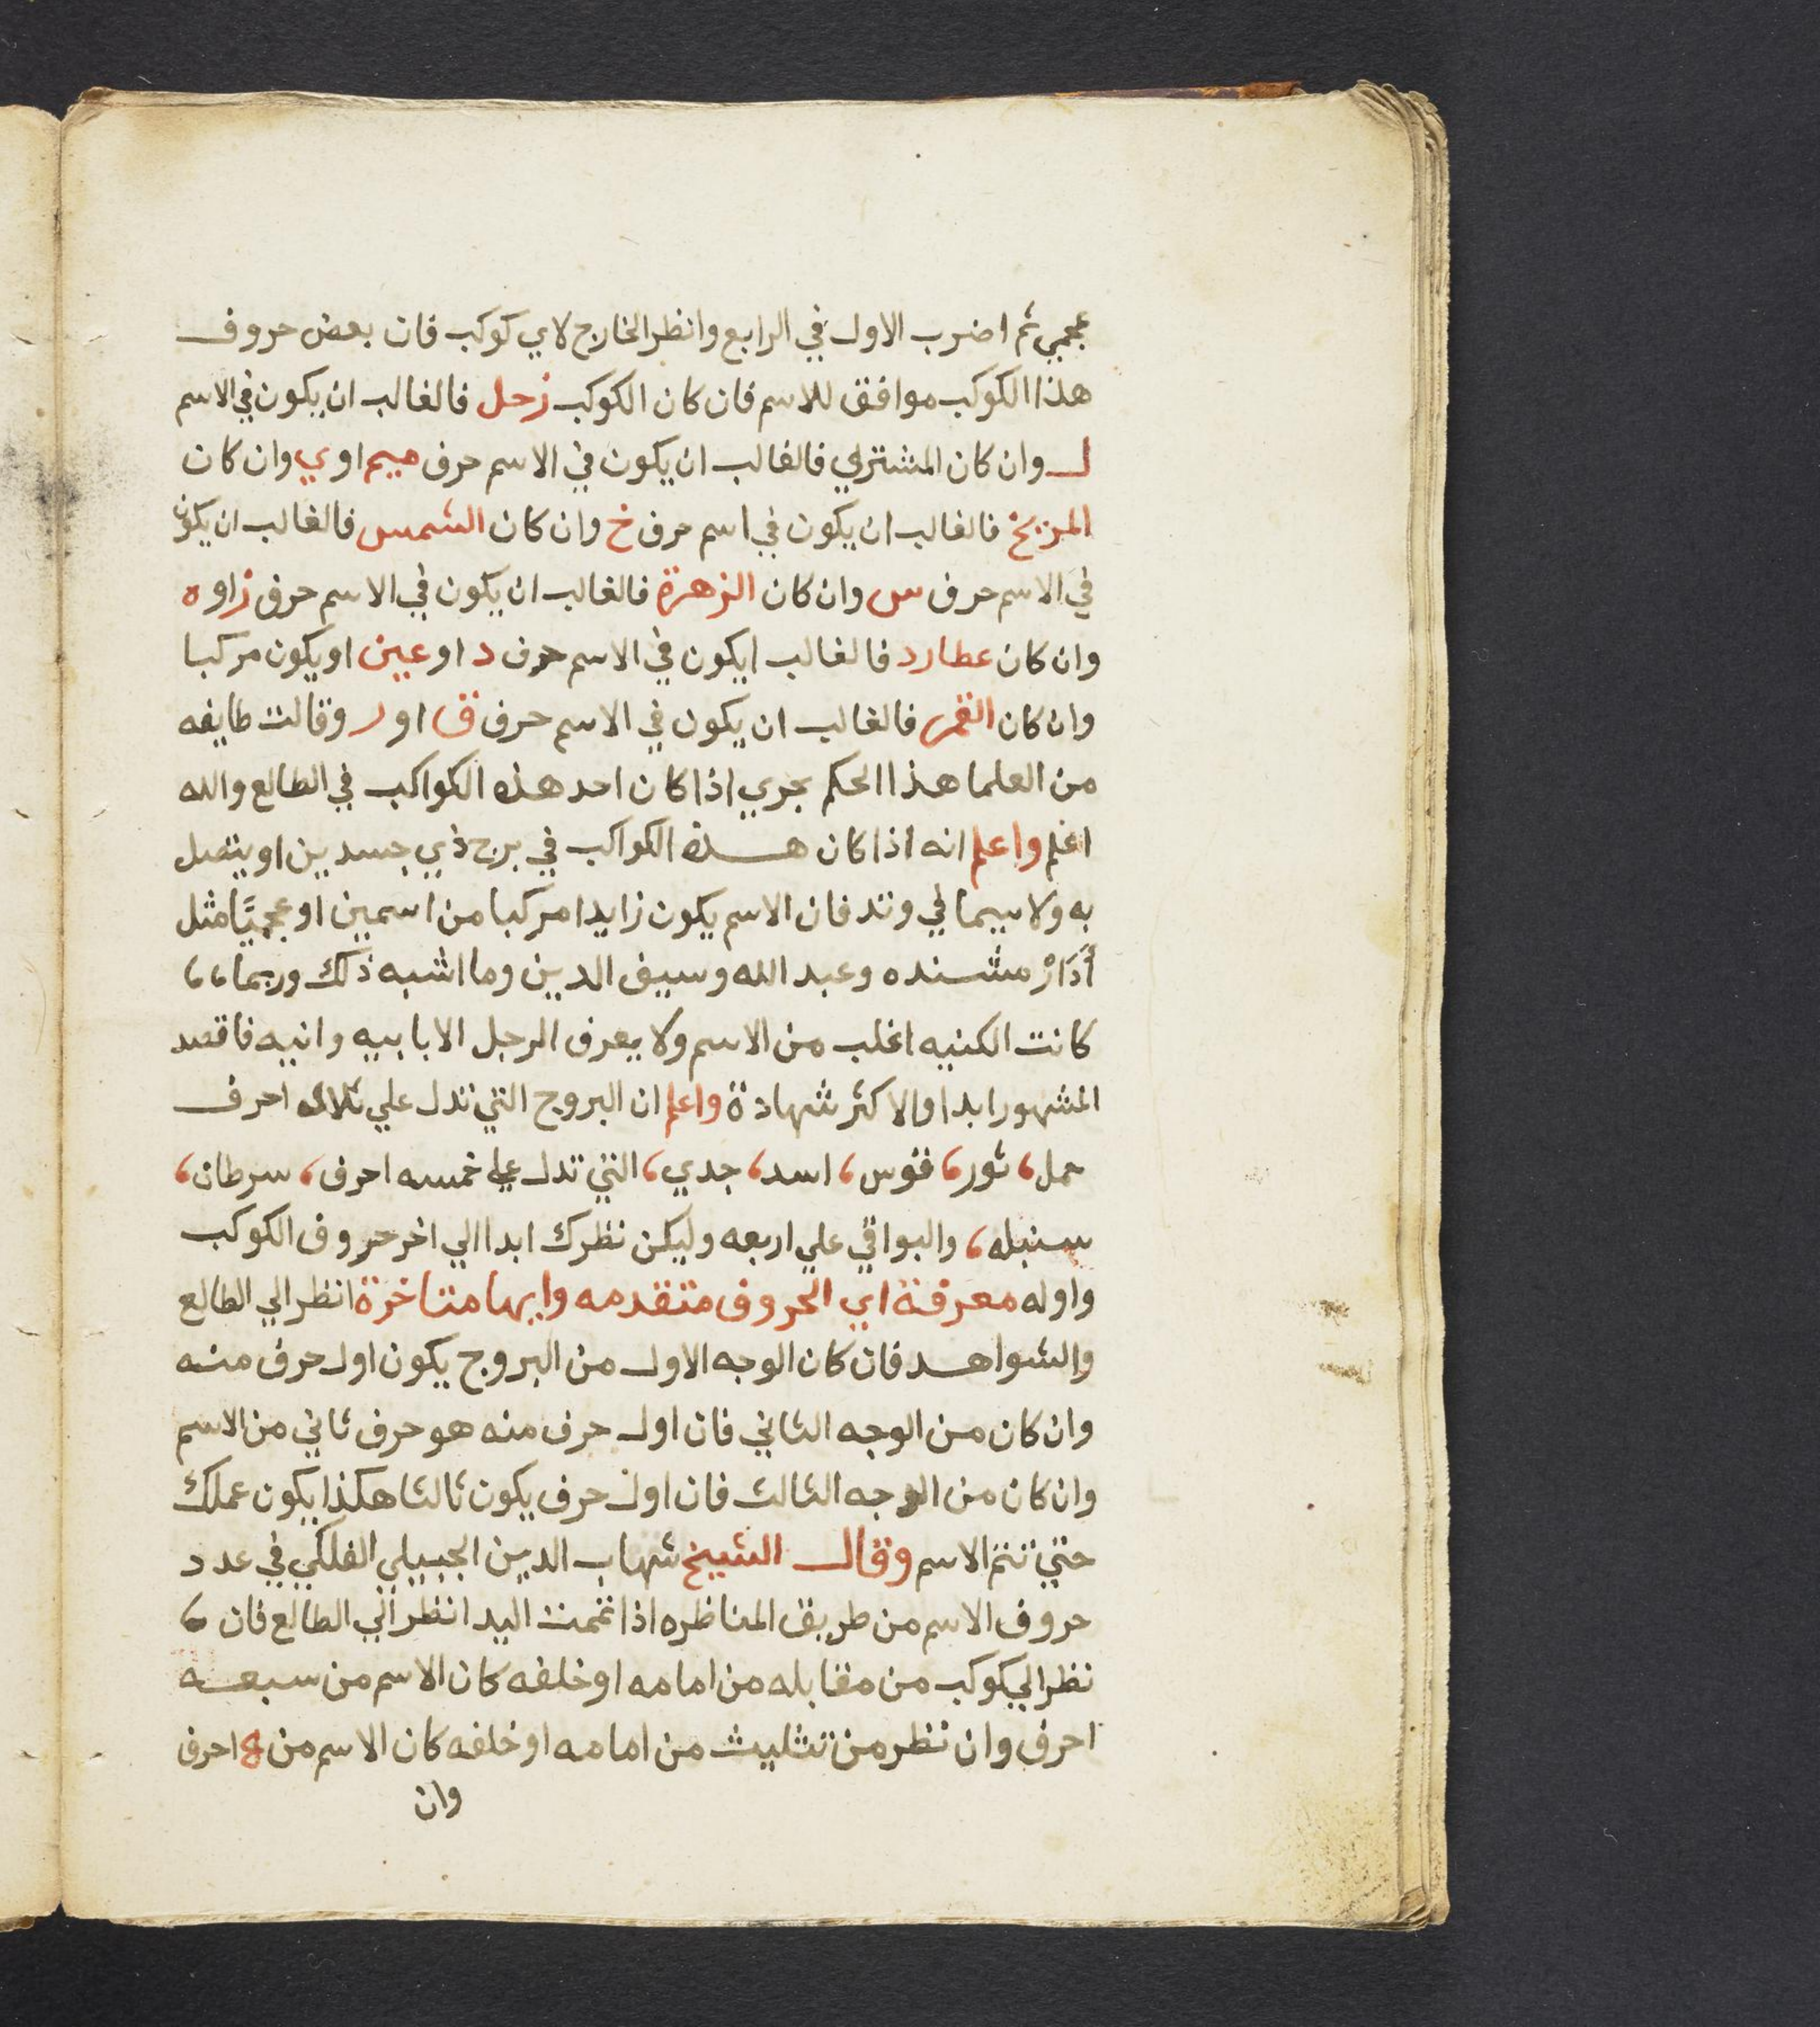 عجمي ثم اضرب الاول في الرابع وانظر الخارج لاي كوكب فان بعض حروف
هذا الكوكب موافق للاسم فان كان الكوكب زحل فالغالب ان يكون في الاسم
ل وان كان المشتري فالغالب ان يكون في الاسم حرف ميم او ي وان كان
المريخ فالغالب ان يكون في اسم حرف خ وان كان الشمس فالغالب ان يكون
في الاسم حرف س وان كان الزهرة فالغالب ان يكون في الاسم حرف ز او ه
وان كان عطارد فالغالب ايكون في الاسم حرف د او عين او يكون مركبا
وان كان القمر فالغالب ان يكون في الاسم حرف ق او ر وقالت طايفه
من العلما هذا الحكم يجري اذا كان احد هذه الكواكب في الطالع والله
اعلم واعلم انه اذا كان هذه الكواكب في برج ذي جسدين او يتصل
به ولا سيما في وتد فان الاسم يكون زايدا مركبا من اسمين او عجميًا مثل
أَدَارْ مشنده وعبد الله وسيف الدين وما اشبه ذلك وربما،،
كانت الكنيه اغلب من الاسم ولا يعرف الرجل الا بابيه وانيه فاقصد
المشهور ابدا والاكثر شهادة واعلم ان البروج التي تدل علي ثلاث احرف
حمل، ثور، قوس، اسد، جدي، التي تدل علي خمسه احرف، سرطان،
سنبله، والبواقي علي اربعه وليكن نظرك ابدا الي اخر حروف الكوكب
واوله معرفة اي الحروف متقدمه وايها متاخرة انظر الي الطالع
والشواهد فان كان الوجه الاول من البروج يكون اول حرف منه
وان كان من الوجه الثاني فان اول حرف منه هو حرف ثاني من الاسم
وان كان من الوجه الثالث فان اول حرف يكون ثالثا هكذا يكون عملك
حتي تتم الاسم وقال الشيخ شهاب الدين الجبيلي الفلكي في عدد
حروف الاسم من طريق المناظره اذا تمت اليد انظر الي الطالع فان،
نظر الي كوكب من مقابله من امامه او خلفه كان الاسم من سبعه
احرف وان نظر من تثليث من امامه او خلفه كان الاسم من احرف
وان